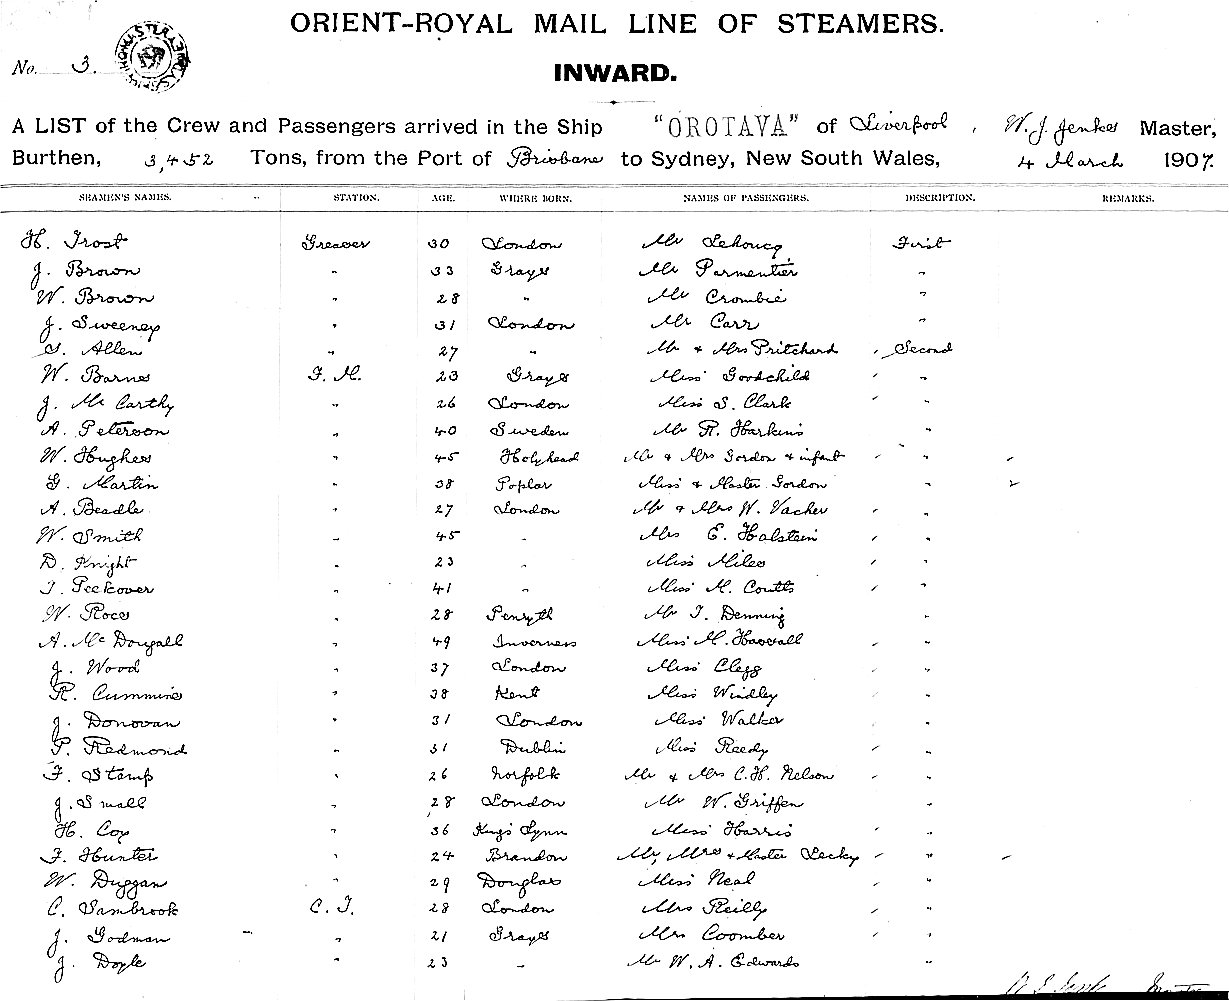 ORIENT-ROYAL MAIL LINE OF STEAMERS.
No. 3.
INWARD.
A LIST of the Crew and Passengers arrived in the Ship "OROTAVA" of Liverpool, W. J. Jenks Master,
Burthen, 3,452 Tons, from the Port of Brisbane to Sydney, New South Wales, 4 March 1907.
SEAMEN'S NAMES. STATION. AGE. WHERE BORN. NAMES OF PASSENGERS. DESCRIPTION. REMARKS.
H. Trost Greaser 30 London Mr Lehoucq First
J. Brown " 33 Grays Mr Parmentier "
W. Brown " 28 " Mr Crombie "
J. Sweeney " 31 London Mr Carr "
G. Allen " 27 " Mr & Mrs Pritchard Second
W. Barnes F. M. 23 Grays Miss Goodchild "
J. Mc Carthy " 26 London Miss S. Clark "
A. Peterson " 40 Sweden Mr R. Harkins "
W. Hughes " 45 Holyhead Mr & Mrs Gordon & infant "
G. Martin " 38 Poplar Miss & Master Gordon "
A. Beadle " 27 London Mr & Mrs W. Vacher "
W. Smith " 45 " Mrs E. Halstein "
D. Knight " 23 " Miss Miles "
T. Peckover " 41 " Miss M. Coutts "
W. Roce " 28 Penryth Mr T. Denning "
A. Mc Dougall " 49 Inverness Miss M. "
J. Wood " 37 London Miss Clegg "
R. Cummins " 38 Kent Miss Windley "
J. Donovan " 31 London Miss Walker "
P. Redmond " 31 Dublin Miss Reedy "
F. Stamp " 26 Norfolk Mr & Mrs C. H. Nelson "
J. Small " 28 London Mr W. Griffen "
H. Cox " 36 Kings Lynn Miss Harris "
F. Hunter " 24 Brandon Mr, Mrs & Master Lecky "
W. Duggan " 29 Douglas Miss Neal "
C. Sambrook C. T. 28 London Mrs Reilly "
J. Godman " 21 Grays Mrs Coomber "
J. Doyle " 23 " Mr W. A. Edwards "